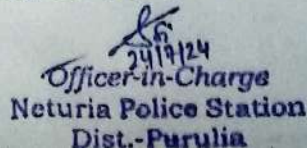 24/7/24
Officer-in-Charge
Neturia Police Station
Dist.-Purulia